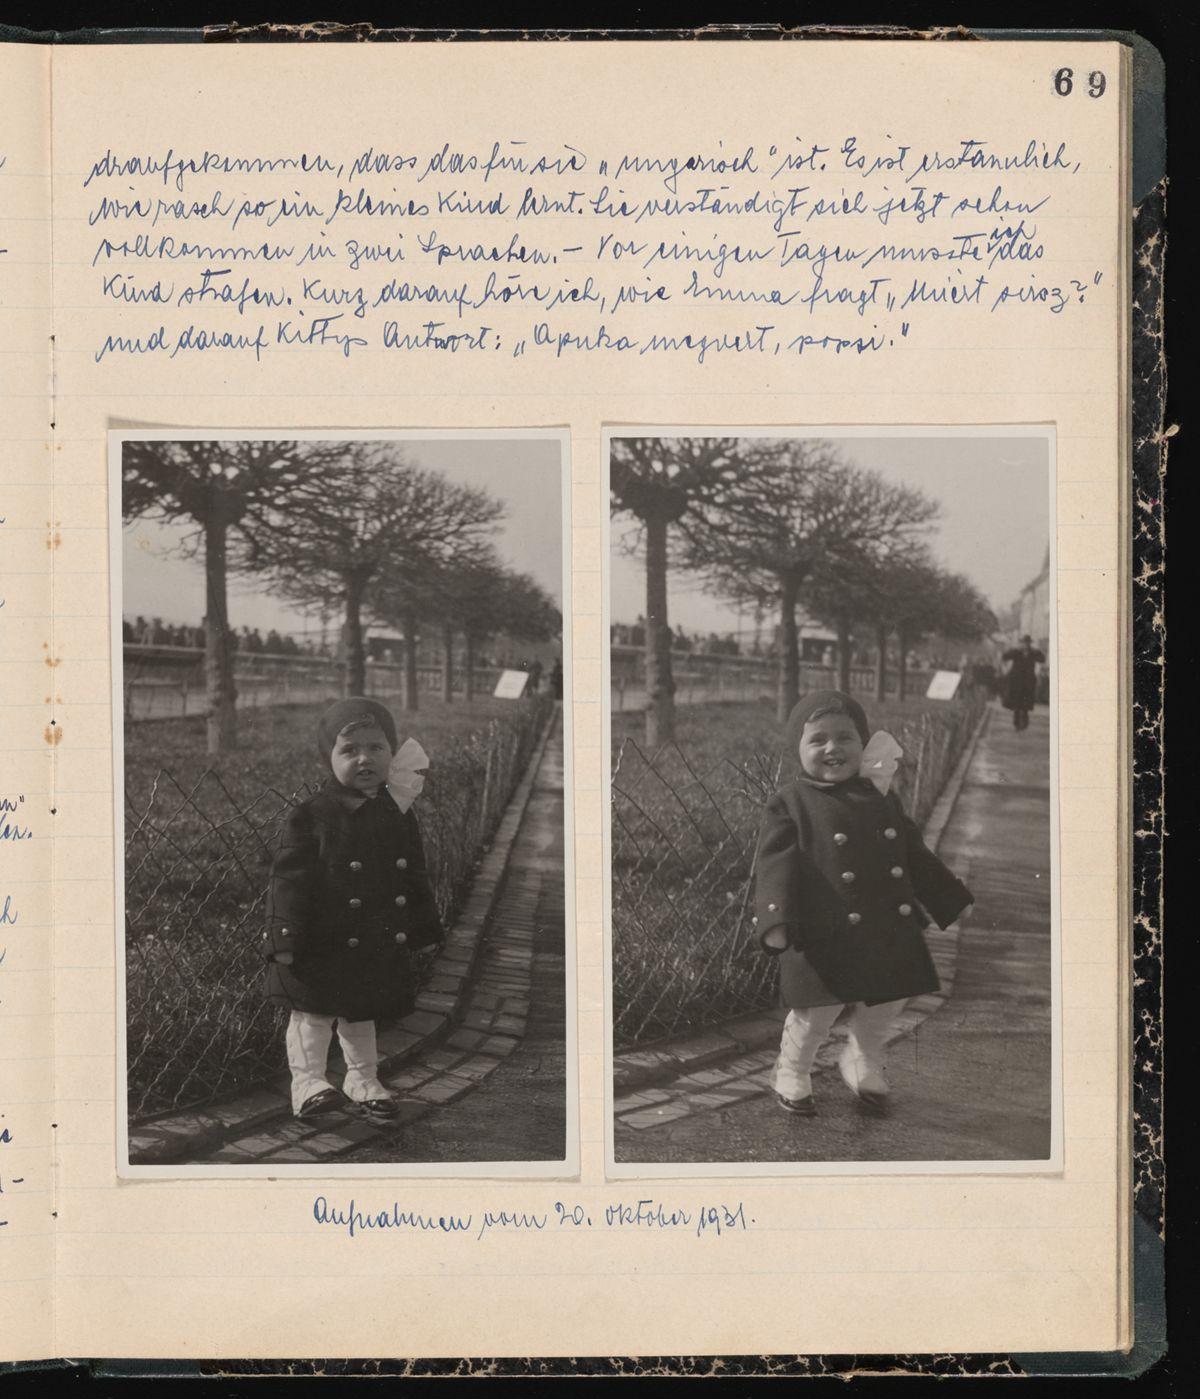 69
draufgekommen, dass das für sie „ungarisch“ ist. Es ist erstaunlich,
wie rasch so ein kleines Kind lernt. Sie verständigt sich jetzt schon
vollkommen in zwei Sprachen. — Vor einigen Tagen musste ich das
Kind strafen. Kurz darauf höre ich, wie Emma fragt „Miért sirsz?“
und darauf Kittys Antwort: „Apuka megvert, popsi.“
Aufnahmen vom 20. Oktober 1931.